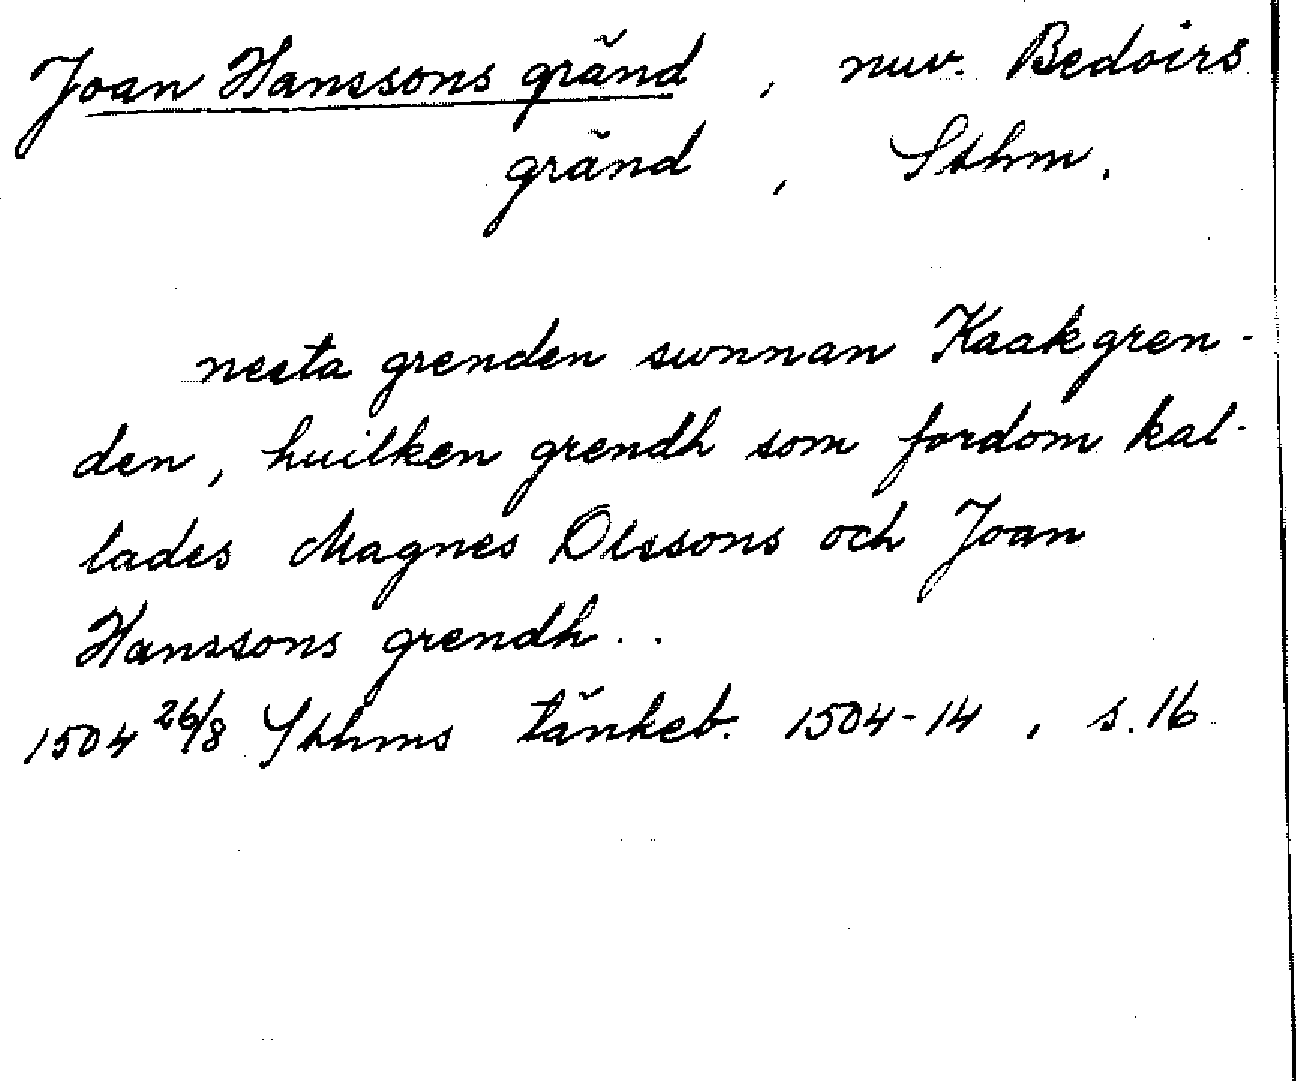 Joan Hanssons gränd, nuv. Bedoirs
gränd, Sthm.
nesta grenden sunnan Kaakgren-
den, huilken grendh som fordom kal-
lades Magnes Olssons och Joan
Hanssons grendh..
1504 26/8 Sthms tänkeb. 1504-14, s. 16